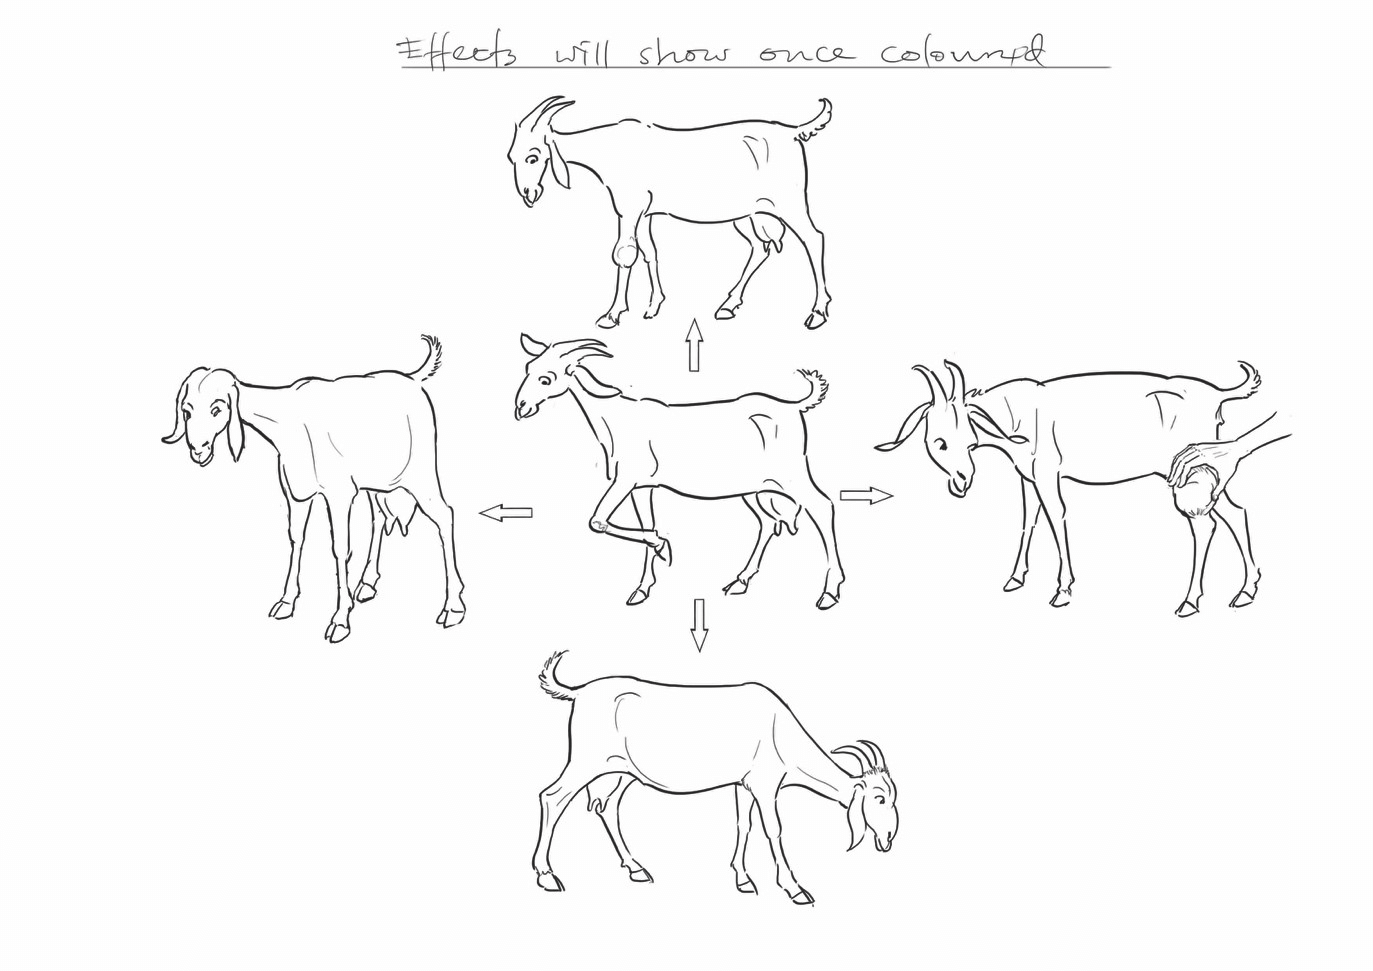 Effects will show once coloured